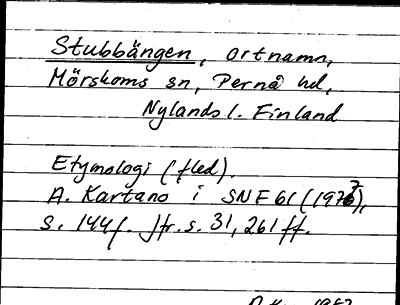 Stubbängen, ortnamn,
Mörskoms sn, Pernå hd,
Nylands l. Finland
Etymologi (fled).
A. Kartano i SNF 61 (1973),
s. 144f. Jfr. s. 31, 261 ff.